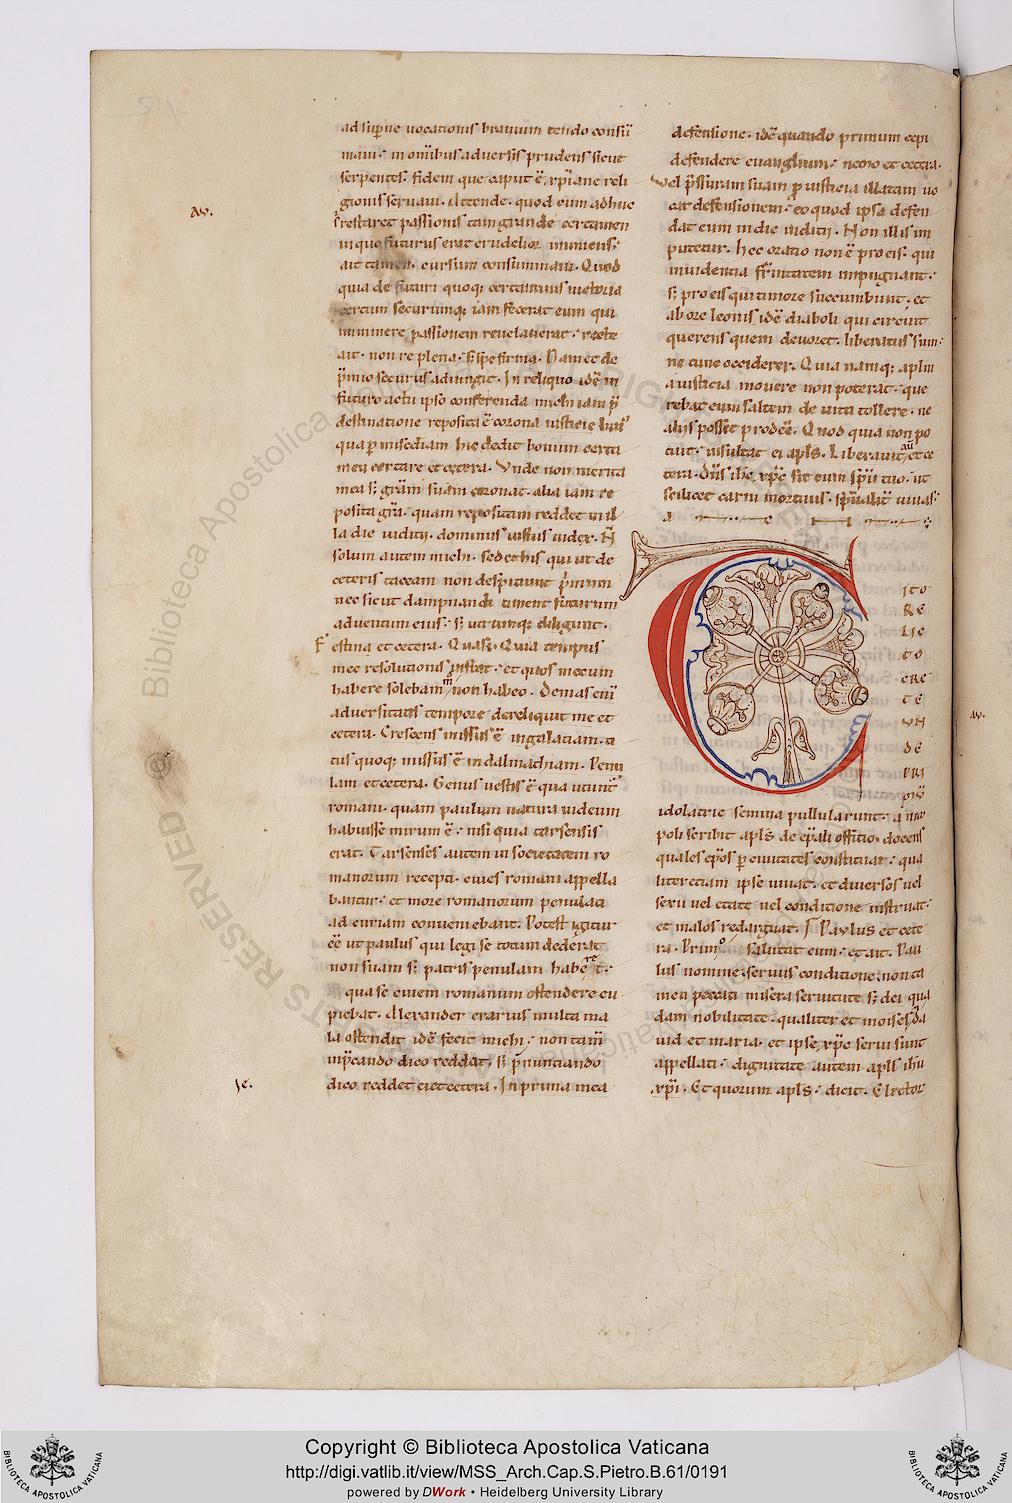 ad sup̄ne uocationis brauium tendo consū
maui · in om̄ibus aduersis prudens sicut
serpentes · fidem que caput ē xp̄iane reli
gionis seruaui · Attende · quod eum adhuc
restaret passionis tam grande certamen
in quo futurus erat crudelior inmiens ·
ait tamen · cursum consummaui · Quod
quia de futuri quoq; certaminis uictoria
certum securumq; iam fecerat eum qui
imminere passionem reuelauerat · recte
ait · non re plena · s; spe firma · Nam et de
p̄mio securus adiungit · In reliquo idē in
futuro actu ipso conferenda michi iam p̄
destinatione reposita ē corona iusticie
qua p misc̄diam hic dedit bonum certa
men certare et cetera · Vnde non merita
mea s; grām suam coronat · alia iam re
posita grā · quam repositam reddet in il
la die iudicij · dominus iustus iudex · N̄
solum autem michi · sed et his qui ut de
ceteris taceam non despiciunt p̄mium
nec sicut dampnandi timent futurum
aduentum eius · s; utrumq; diligunt ·
Festina et cetera · Quasi · Quia tempus
mee resolutionis instat · et quos mecum
habere solebam m̄ non habeo · Demas enī
aduersitatis tempore dereliquit me et
cetera · Crescens missus ē in galatiam · ti
tus quoq; missus ē in dalmatiam · Penu
lam et cetera · Genus uestis ē qua utunt̄
romani · quam paulum natura uideum
habuisse mirum ē · nisi quia tarsensis
erat · Tarsenses autem in societatem ro
manorum recepti · ciues romani appella
bantur · et more romanorum penulati
ad curiam conueniebant · Potest igitur
eē ut paulus qui legi se totum dederat
non suam s; patris penulam haberet ·
qua se ciuem romanum ostendere cu
piebat · Alexander erarius multa ma
la ostendit idē fecit michi · non tam̄
inp̄cando dico reddat · s; p̄nuntiando
dico reddet ei et cetera · In prima mea
au.
Ie.
defensione · idē quando primum cepi
defendere euanglium · nemo et cetera ·
Vel p̄ssuram suam p iusticia illatam uo
cat defensionem · eo quod ipsa defen
dat eum in die iudicij · Non illis im
putetur · hec oratio non ē pro eis · qui
inuidentia fr̄nitatem impugnant ·
s; pro eis qui timore succumbunt · et
ab ore leonis idē diaboli qui circuit
querens quem deuoret · liberatus sum ·
ne tunc occiderer · Quia namq; aplm
a iusticia mouere non poterat · que
rebat eum saltem de uita tollere · ne
alijs posset prodeē · Quod quia non po
tuit · insultat ei apls̄ · Liberauit aū et ce
tera · Dn̄s ih̄c xp̄c sit cum sp̄u tuo · ut
scilicet carni mortuus · sp̄ualit̄ uiuas ·
TITO
RE
LIC
TO
CRE
TE
VN
DE
PRI
MŪ
idolatrie semina pullularunt · a nico
poli scribit apls̄ de ep̄ali officio · docens
quales ep̄os p ciuitates constituat · qua
liter etiam ipse uiuat · et diuersos uel
sexu uel etate uel conditione instruat ·
et malos redarguat · Paulus et cete
ra · Primo salutat eum · et ait · Pau
lus nomine · seruus conditione · non ta
men peccati misera seruitute s; dei qua
dam nobilitate · qualiter et moises · da
uid et maria · et ipse xp̄c serui sunt
appellati · dignitate autem apls̄ ih̄u
xp̄i · Et quorum apls̄ · dicit · Elector
au.
Biblioteca Apostolica Vaticana
© ALL RIGHTS RESERVED
BIBLIOTECA APOSTOLICA VATICANA
Copyright © Biblioteca Apostolica Vaticana
http://digi.vatlib.it/view/MSS_Arch.Cap.S.Pietro.B.61/0191
powered by DWork • Heidelberg University Library
BIBLIOTECA APOSTOLICA VATICANA